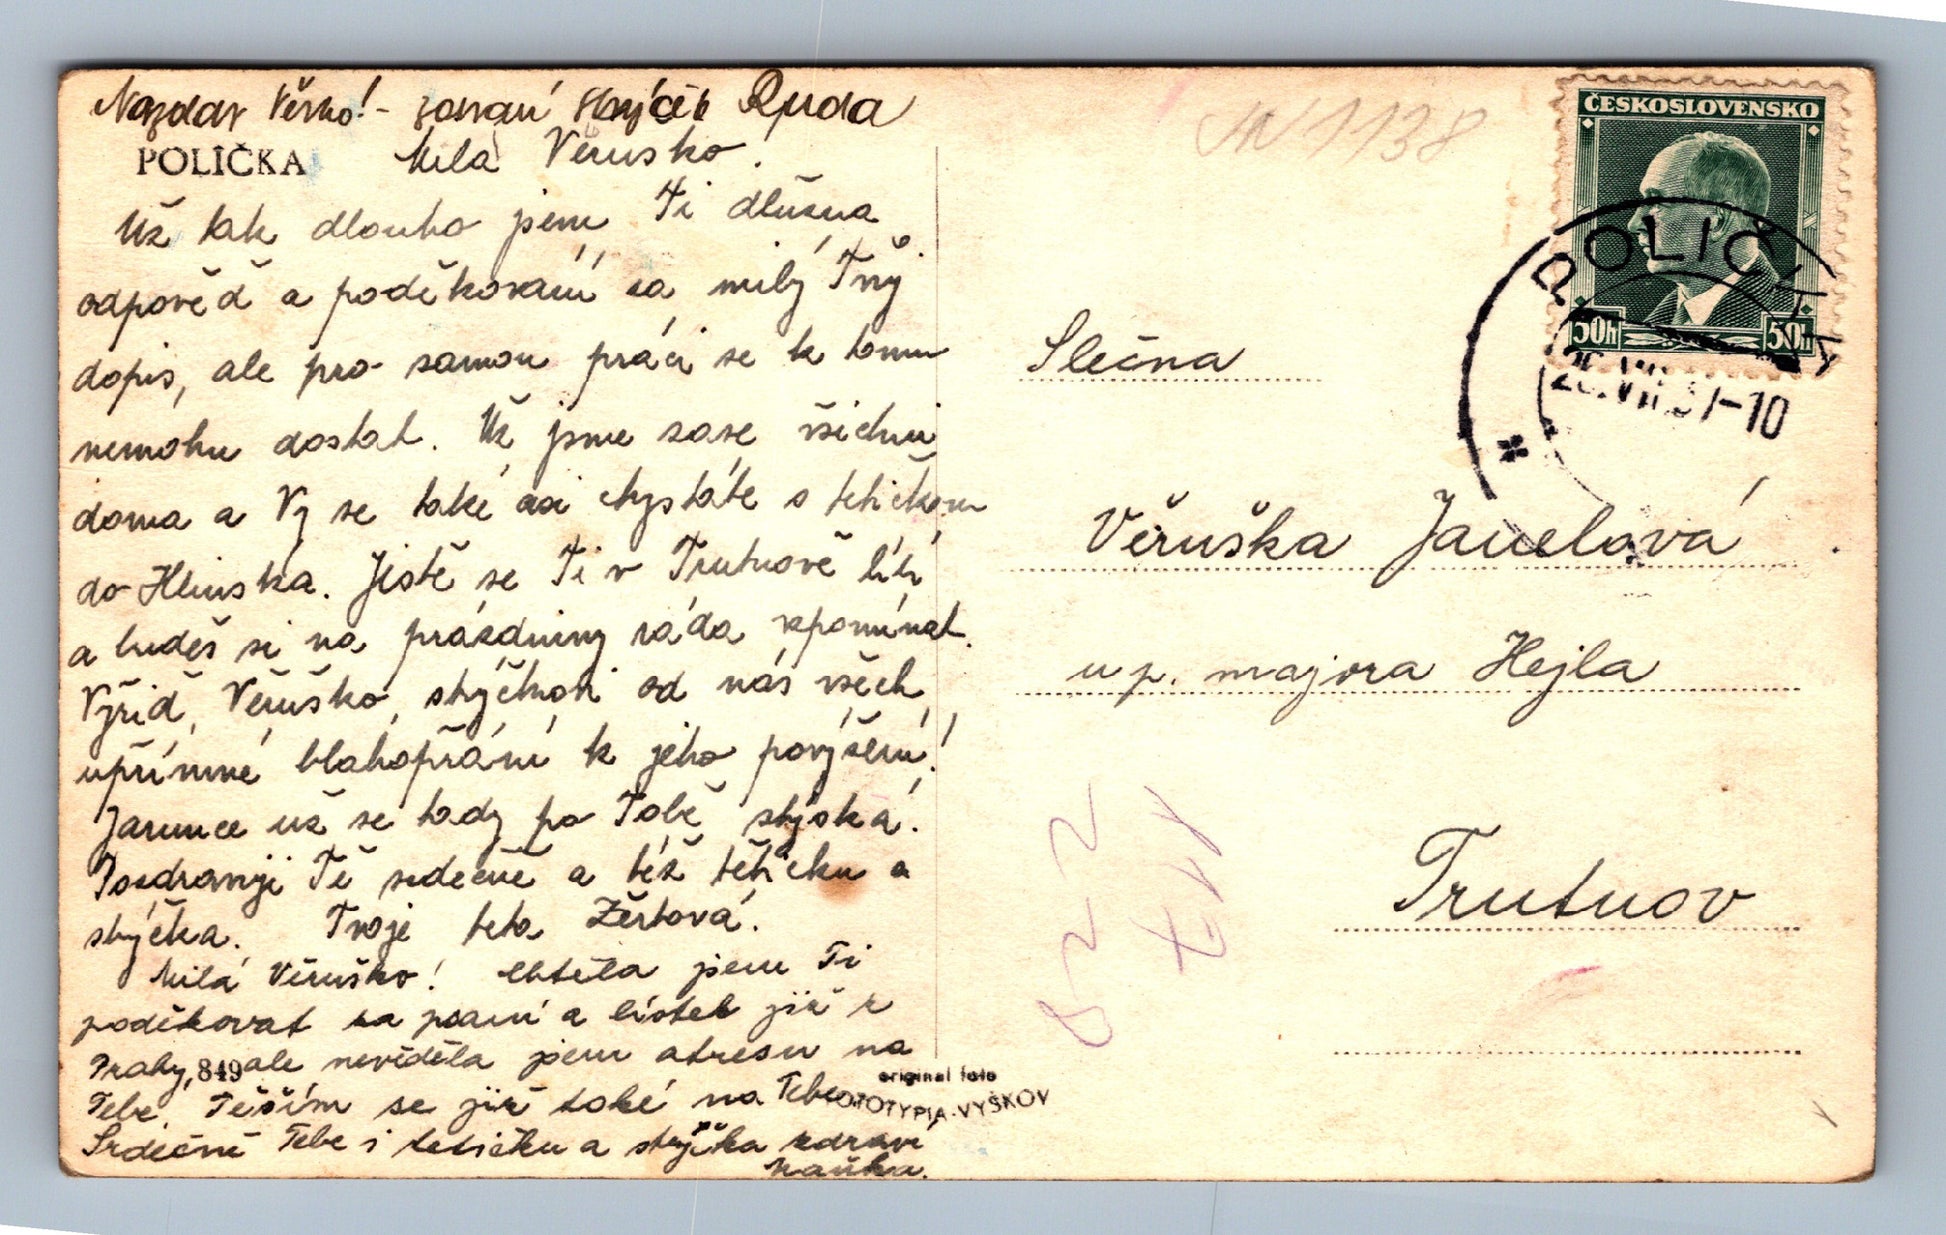 Nazdar Věrko! - zdraví strýček Ruda
POLIČKA
Milá Věruško!
Už tak dlouho jsem Ti dlužna
odpověď a poděkování za milý Tvůj
dopis, ale pro samou práci se k tomu
nemohu dostat. Už jsme zase všichni
doma a Vy se také asi chystáte s tetičkou
do Hlinska. Jistě se Ti v Trutnově líbí
a budeš si na prázdniny ráda vzpomínat.
Vyřiď, Věruško, strýčkovi od nás všech
upřímné blahopřání k jeho povýšení!
Jarunce už se tady po Tobě stýská.
Pozdravuji Tě srdečně a též tetičku a
strýčka. Tvoje teta Žertová.
Milá Věruško! Chtěla jsem Ti
poděkovat za psaní a lístek již z
Prahy, ale nevěděla jsem adresu na
849
Tebe. Těším se již také na Tebe.
Srdečně Tebe i tetičku a strýčka zdraví
original foto
FOTOTYPIA-VYŠKOV
JN 1138
ČESKOSLOVENSKO
50h 50h
POLIČKA
Slečna
Věruška Janelová
u p. majora Hejla
Trutnov